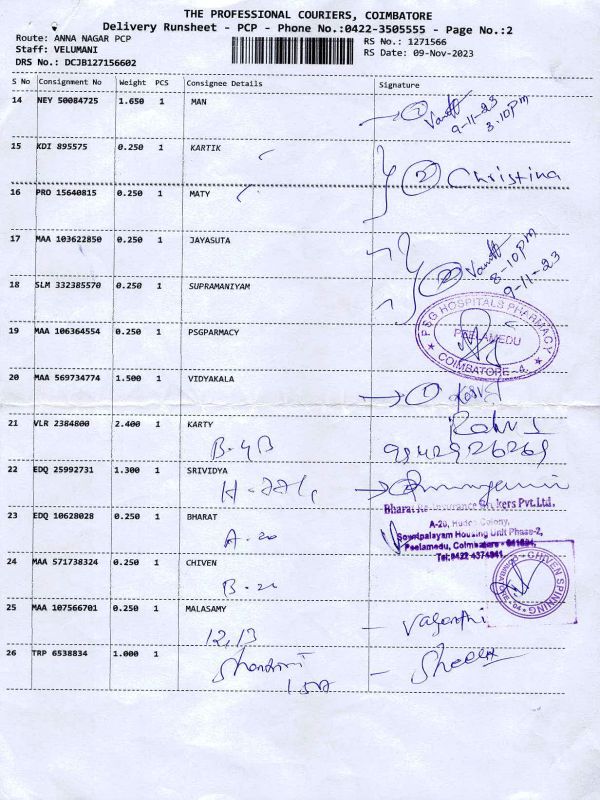 THE PROFESSIONAL COURIERS, COIMBATORE
Delivery Runsheet - PCP - Phone No.:0422-3505555 - Page No.:2
Route: ANNA NAGAR PCP
RS No.: 1271566
Staff: VELUMANI
RS Date: 09-Nov-2023
DRS No.: DCJB127156602
S No Consignment No Weight PCS Consignee Details Signature
14 NEY 50084725 1.650 1 MAN
9-11-23
3.10pm
15 KDI 895575 0.250 1 KARTIK
2 Christina
16 PRO 15640815 0.250 1 MATY
17 MAA 103622850 0.250 1 JAYASUTA
8-10pm
9-11-23
18 SLM 332385570 0.250 1 SUPRAMANIYAM
PSG HOSPITALS PHARMACY
PEELAMEDU
COIMBATORE-4
19 MAA 106364554 0.250 1 PSGPARMACY
20 MAA 569734774 1.500 1 VIDYAKALA
1
21 VLR 2384800 2.400 1 KARTY
B-4B
22 EDQ 25992731 1.300 1 SRIVIDYA
23 EDQ 10628028 0.250 1 BHARAT
A-20
Pvt.Ltd.
A-20, Hudco Colony,
Sowripalayam Housing Unit Phase-2,
Peelamedu, Coimbatore - 641004,
Tel:0422-4374941
24 MAA 571738324 0.250 1 CHIVEN
CHIVEN SPINNING
25 MAA 107566701 0.250 1 MALASAMY
12,13
26 TRP 6538834 1.000 1